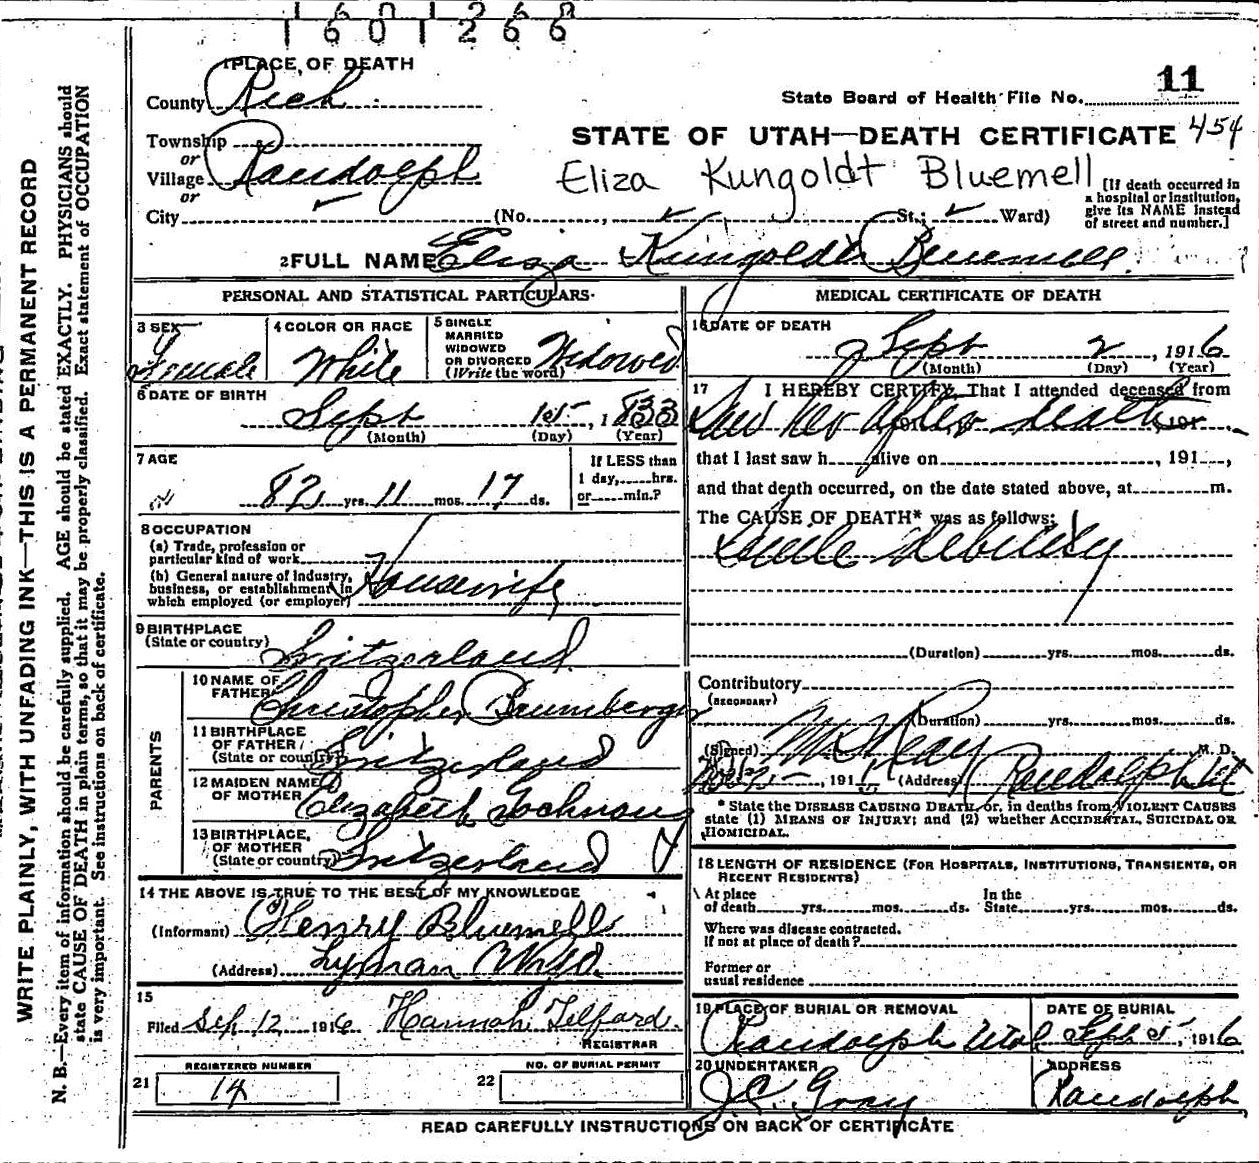 1601266
1 PLACE OF DEATH
County Rich
State Board of Health File No. 11
Township
or
Village Randolph
or
STATE OF UTAH—DEATH CERTIFICATE 454
Eliza Kungoldt Bluemell
City (No. , St.; Ward)
[If death occurred in
a hospital or institution,
give its NAME instead
of street and number.]
2 FULL NAME Eliza
PERSONAL AND STATISTICAL PARTICULARS
3 SEX
Female
4 COLOR OR RACE
White
5 SINGLE
MARRIED
WIDOWED
OR DIVORCED
(Write the word)
Widowed
6 DATE OF BIRTH
Sept 15, 1833
(Month) (Day) (Year)
7 AGE
82 yrs. 11 mos. 17 ds.
If LESS than
1 day, hrs.
or min.?
8 OCCUPATION
(a) Trade, profession or
particular kind of work
(b) General nature of industry,
business, or establishment in
which employed (or employer)
Housewife
9 BIRTHPLACE
(State or country)
Switzerland
PARENTS
10 NAME OF
FATHER
Christopher
11 BIRTHPLACE
OF FATHER
(State or country)
Switzerland
12 MAIDEN NAME
OF MOTHER
Elizabeth
13 BIRTHPLACE
OF MOTHER
(State or country)
Switzerland
14 THE ABOVE IS TRUE TO THE BEST OF MY KNOWLEDGE
(Informant) Henry Bluemell
(Address) Lyman Wyo.
15
Filed Sep 12 1916 Hannah Telford
REGISTRAR
REGISTERED NUMBER
21 14
NO. OF BURIAL PERMIT
22
MEDICAL CERTIFICATE OF DEATH
16 DATE OF DEATH
Sept 2, 1916
(Month) (Day) (Year)
17 I HEREBY CERTIFY, That I attended deceased from
Saw her after death 191
that I last saw h alive on , 191 ,
and that death occurred, on the date stated above, at m.
The CAUSE OF DEATH* was as follows:
Senile debility
(Duration) yrs. mos. ds.
Contributory
(SECONDARY)
(Duration) yrs. mos. ds.
(Signed) M. D.
, 191 (Address) Randolph Ut
* State the DISEASE CAUSING DEATH, or, in deaths from VIOLENT CAUSES
state (1) MEANS OF INJURY; and (2) whether ACCIDENTAL, SUICIDAL OR
HOMICIDAL.
18 LENGTH OF RESIDENCE (FOR HOSPITALS, INSTITUTIONS, TRANSIENTS, OR
RECENT RESIDENTS)
At place
of death yrs. mos. ds.
In the
State yrs. mos. ds.
Where was disease contracted.
If not at place of death?
Former or
usual residence
19 PLACE OF BURIAL OR REMOVAL
Randolph Utah
DATE OF BURIAL
Sept 5, 1916
20 UNDERTAKER
J.C. Gray
ADDRESS
Randolph
READ CAREFULLY INSTRUCTIONS ON BACK OF CERTIFICATE
WRITE PLAINLY, WITH UNFADING INK—THIS IS A PERMANENT RECORD
N. B.—Every item of information should be carefully supplied. AGE should be stated EXACTLY. PHYSICIANS should
state CAUSE OF DEATH in plain terms, so that it may be properly classified. Exact statement of OCCUPATION
is very important. See instructions on back of certificate.